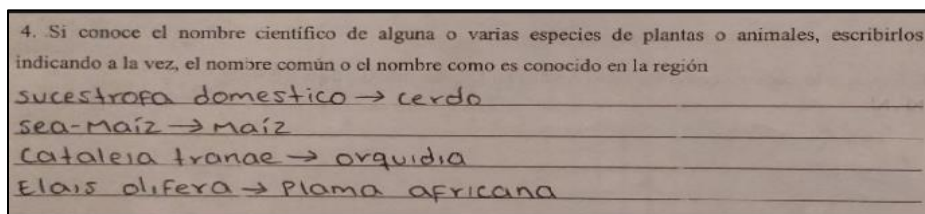 4. Si conoce el nombre científico de alguna o varias especies de plantas o animales, escribirlos
indicando a la vez, el nombre común o el nombre como es conocido en la región
sucestrofa domestico → cerdo
sea-maíz → maíz
cataleia tranae → orquidia
Elais olifera → Plama africana